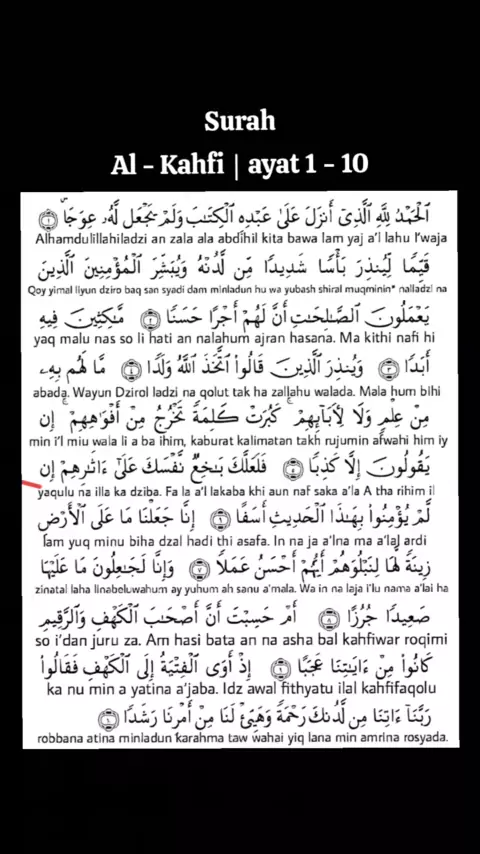 Surah
Al - Kahfi | ayat 1 - 10
ٱلْحَمْدُ لِلَّهِ ٱلَّذِىٓ أَنزَلَ عَلَىٰ عَبْدِهِ ٱلْكِتَٰبَ وَلَمْ يَجْعَل لَّهُۥ عِوَجَاۜ ۝١
Alhamdulillahiladzi an zala ala abdihil kita bawa lam yaj a'i lahu I'waja
قَيِّمًا لِّيُنذِرَ بَأْسًا شَدِيدًا مِّن لَّدُنْهُ وَيُبَشِّرَ ٱلْمُؤْمِنِينَ ٱلَّذِينَ
Qoy yimal liyun dziro baq san syadi dam minladun hu wa yubash shiral muqminin* nalladzi na
يَعْمَلُونَ ٱلصَّٰلِحَٰتِ أَنَّ لَهُمْ أَجْرًا حَسَنًا ۝٢ مَّٰكِثِينَ فِيهِ
yaq malu nas so li hati an nalahum ajran hasana. Ma kithi nafi hi
أَبَدًا ۝٣ وَيُنذِرَ ٱلَّذِينَ قَالُوا۟ ٱتَّخَذَ ٱللَّهُ وَلَدًا ۝٤ مَّا لَهُم بِهِۦ
abada. Wayun Dzirol ladzi na qolut tak ha zallahu walada. Mala hum bihi
مِنْ عِلْمٍ وَلَا لِـَٔابَآئِهِمْ ۚ كَبُرَتْ كَلِمَةً تَخْرُجُ مِنْ أَفْوَٰهِهِمْ ۚ إِن
min i'l miu wala li a ba ihim, kaburat kalimatan takh rujumin afwahi him iy
يَقُولُونَ إِلَّا كَذِبًا ۝٥ فَلَعَلَّكَ بَٰخِعٌ نَّفْسَكَ عَلَىٰٓ ءَاثَٰرِهِمْ إِن
yaqulu na illa ka dziba. Fa la a'l lakaba khi aun naf saka a'la A tha rihim il
لَّمْ يُؤْمِنُوا۟ بِهَٰذَا ٱلْحَدِيثِ أَسَفًا ۝٦ إِنَّا جَعَلْنَا مَا عَلَى ٱلْأَرْضِ
lam yuq minu biha dzal hadi thi asafa. In na ja a'lna ma a'lal ardi
زِينَةً لَّهَا لِنَبْلُوَهُمْ أَيُّهُمْ أَحْسَنُ عَمَلًا ۝٧ وَإِنَّا لَجَٰعِلُونَ مَا عَلَيْهَا
zinatal laha linabeluwahum ay yuhum ah sanu a'mala. Wa in na laja i'lu nama a'lai ha
صَعِيدًا جُرُزًا ۝٨ أَمْ حَسِبْتَ أَنَّ أَصْحَٰبَ ٱلْكَهْفِ وَٱلرَّقِيمِ
so i'dan juru za. Am hasi bata an na asha bal kahfiwar roqimi
كَانُوا۟ مِنْ ءَايَٰتِنَا عَجَبًا ۝٩ إِذْ أَوَى ٱلْفِتْيَةُ إِلَى ٱلْكَهْفِ فَقَالُوا۟
ka nu min a yatina a'jaba. Idz awal fithyatu ilal kahfifaqolu
رَبَّنَآ ءَاتِنَا مِن لَّدُنكَ رَحْمَةً وَهَيِّئْ لَنَا مِنْ أَمْرِنَا رَشَدًا ۝١٠
robbana atina minladun karahma taw wahai yiq lana min amrina rosyada.